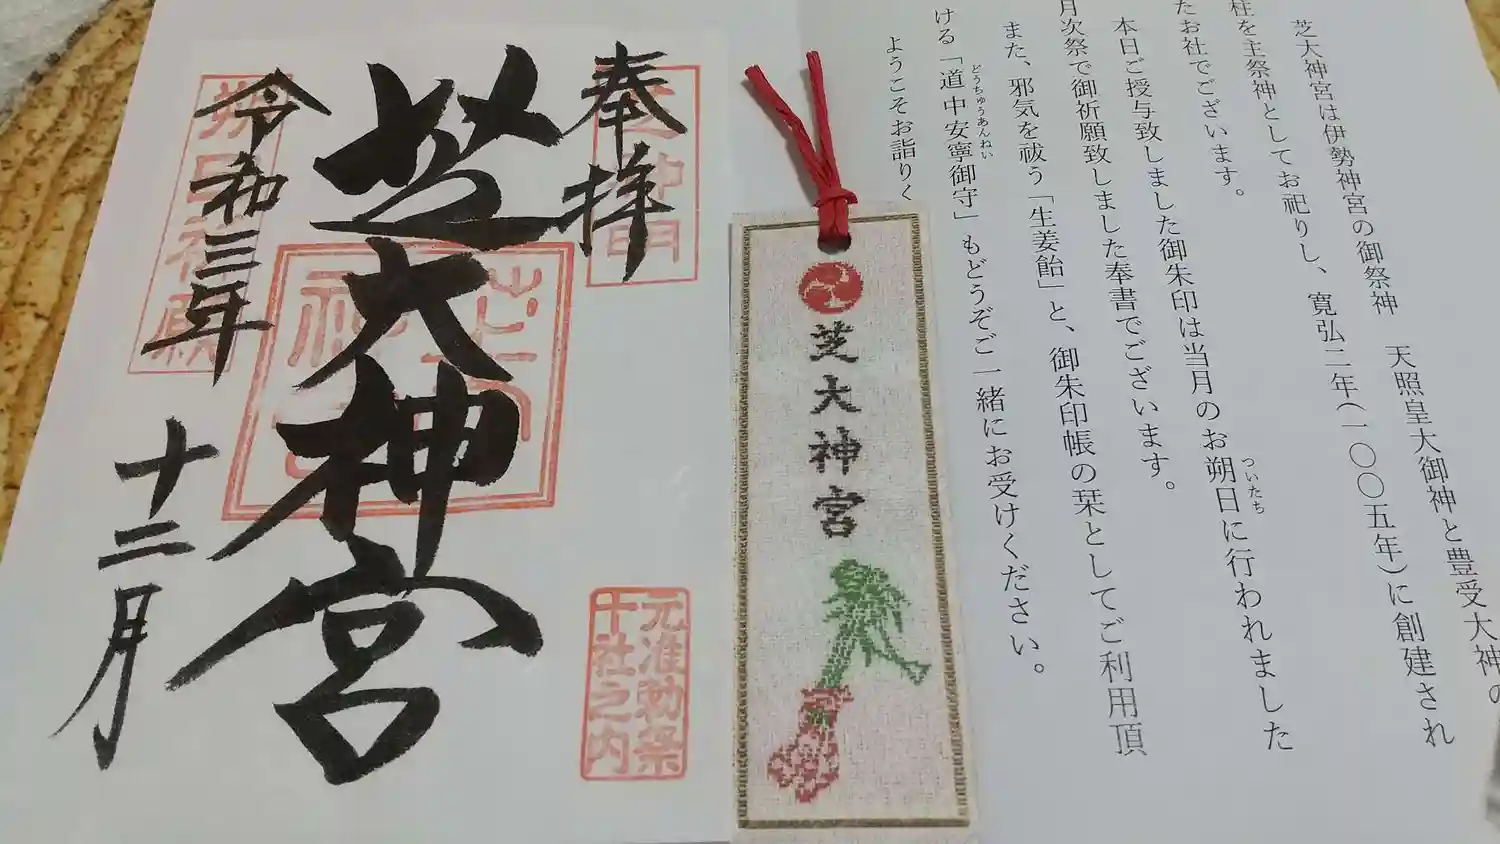 芝大神宮は伊勢神宮の御祭神　天照皇大御神と豊受大神の
柱を主祭神としてお祀りし、寛弘二年(一〇〇五年)に創建され
たお社でございます。
本日ご授与致しました御朱印は当月のお朔日に行われました
ついたち
月次祭で御祈願致しました奉書でございます。
また、邪気を祓う「生姜飴」と、御朱印帳の栞としてご利用頂
ける「道中安寧御守」もどうぞご一緒にお受けください。
どうちゅうあんねい
ようこそお詣りく
芝大神宮
奉拝
芝大神宮
令和三年
十二月
元准勅祭
十社之内